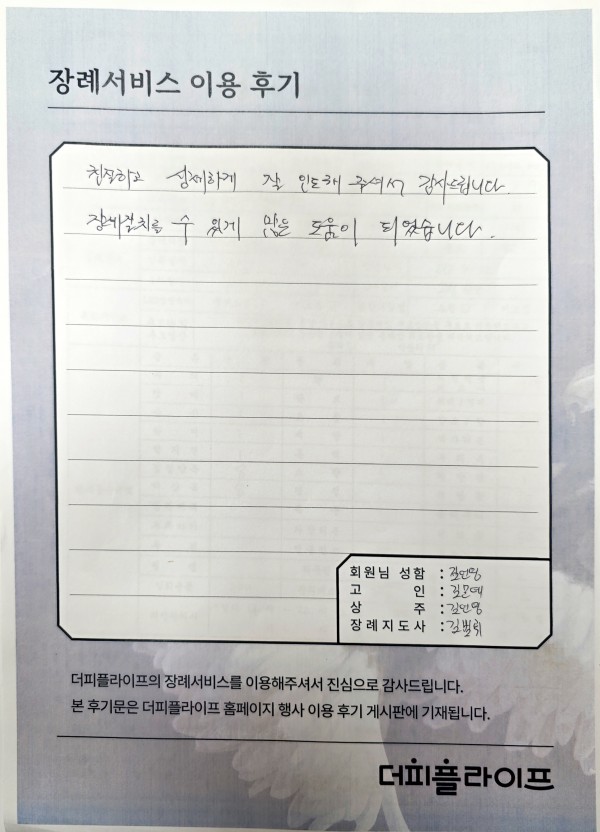 장례서비스 이용 후기
친절하고 섬세하게 잘 인도해 주셔서 감사드립니다.
장례절차를 수 있게 많은 도움이 되었습니다.
회원님 성함 : 김인영
고 인 :
상 주 : 김인영
장례지도사 : 김범휘
더피플라이프의 장례서비스를 이용해주셔서 진심으로 감사드립니다.
본 후기문은 더피플라이프 홈페이지 행사 이용 후기 게시판에 기재됩니다.
더피플라이프